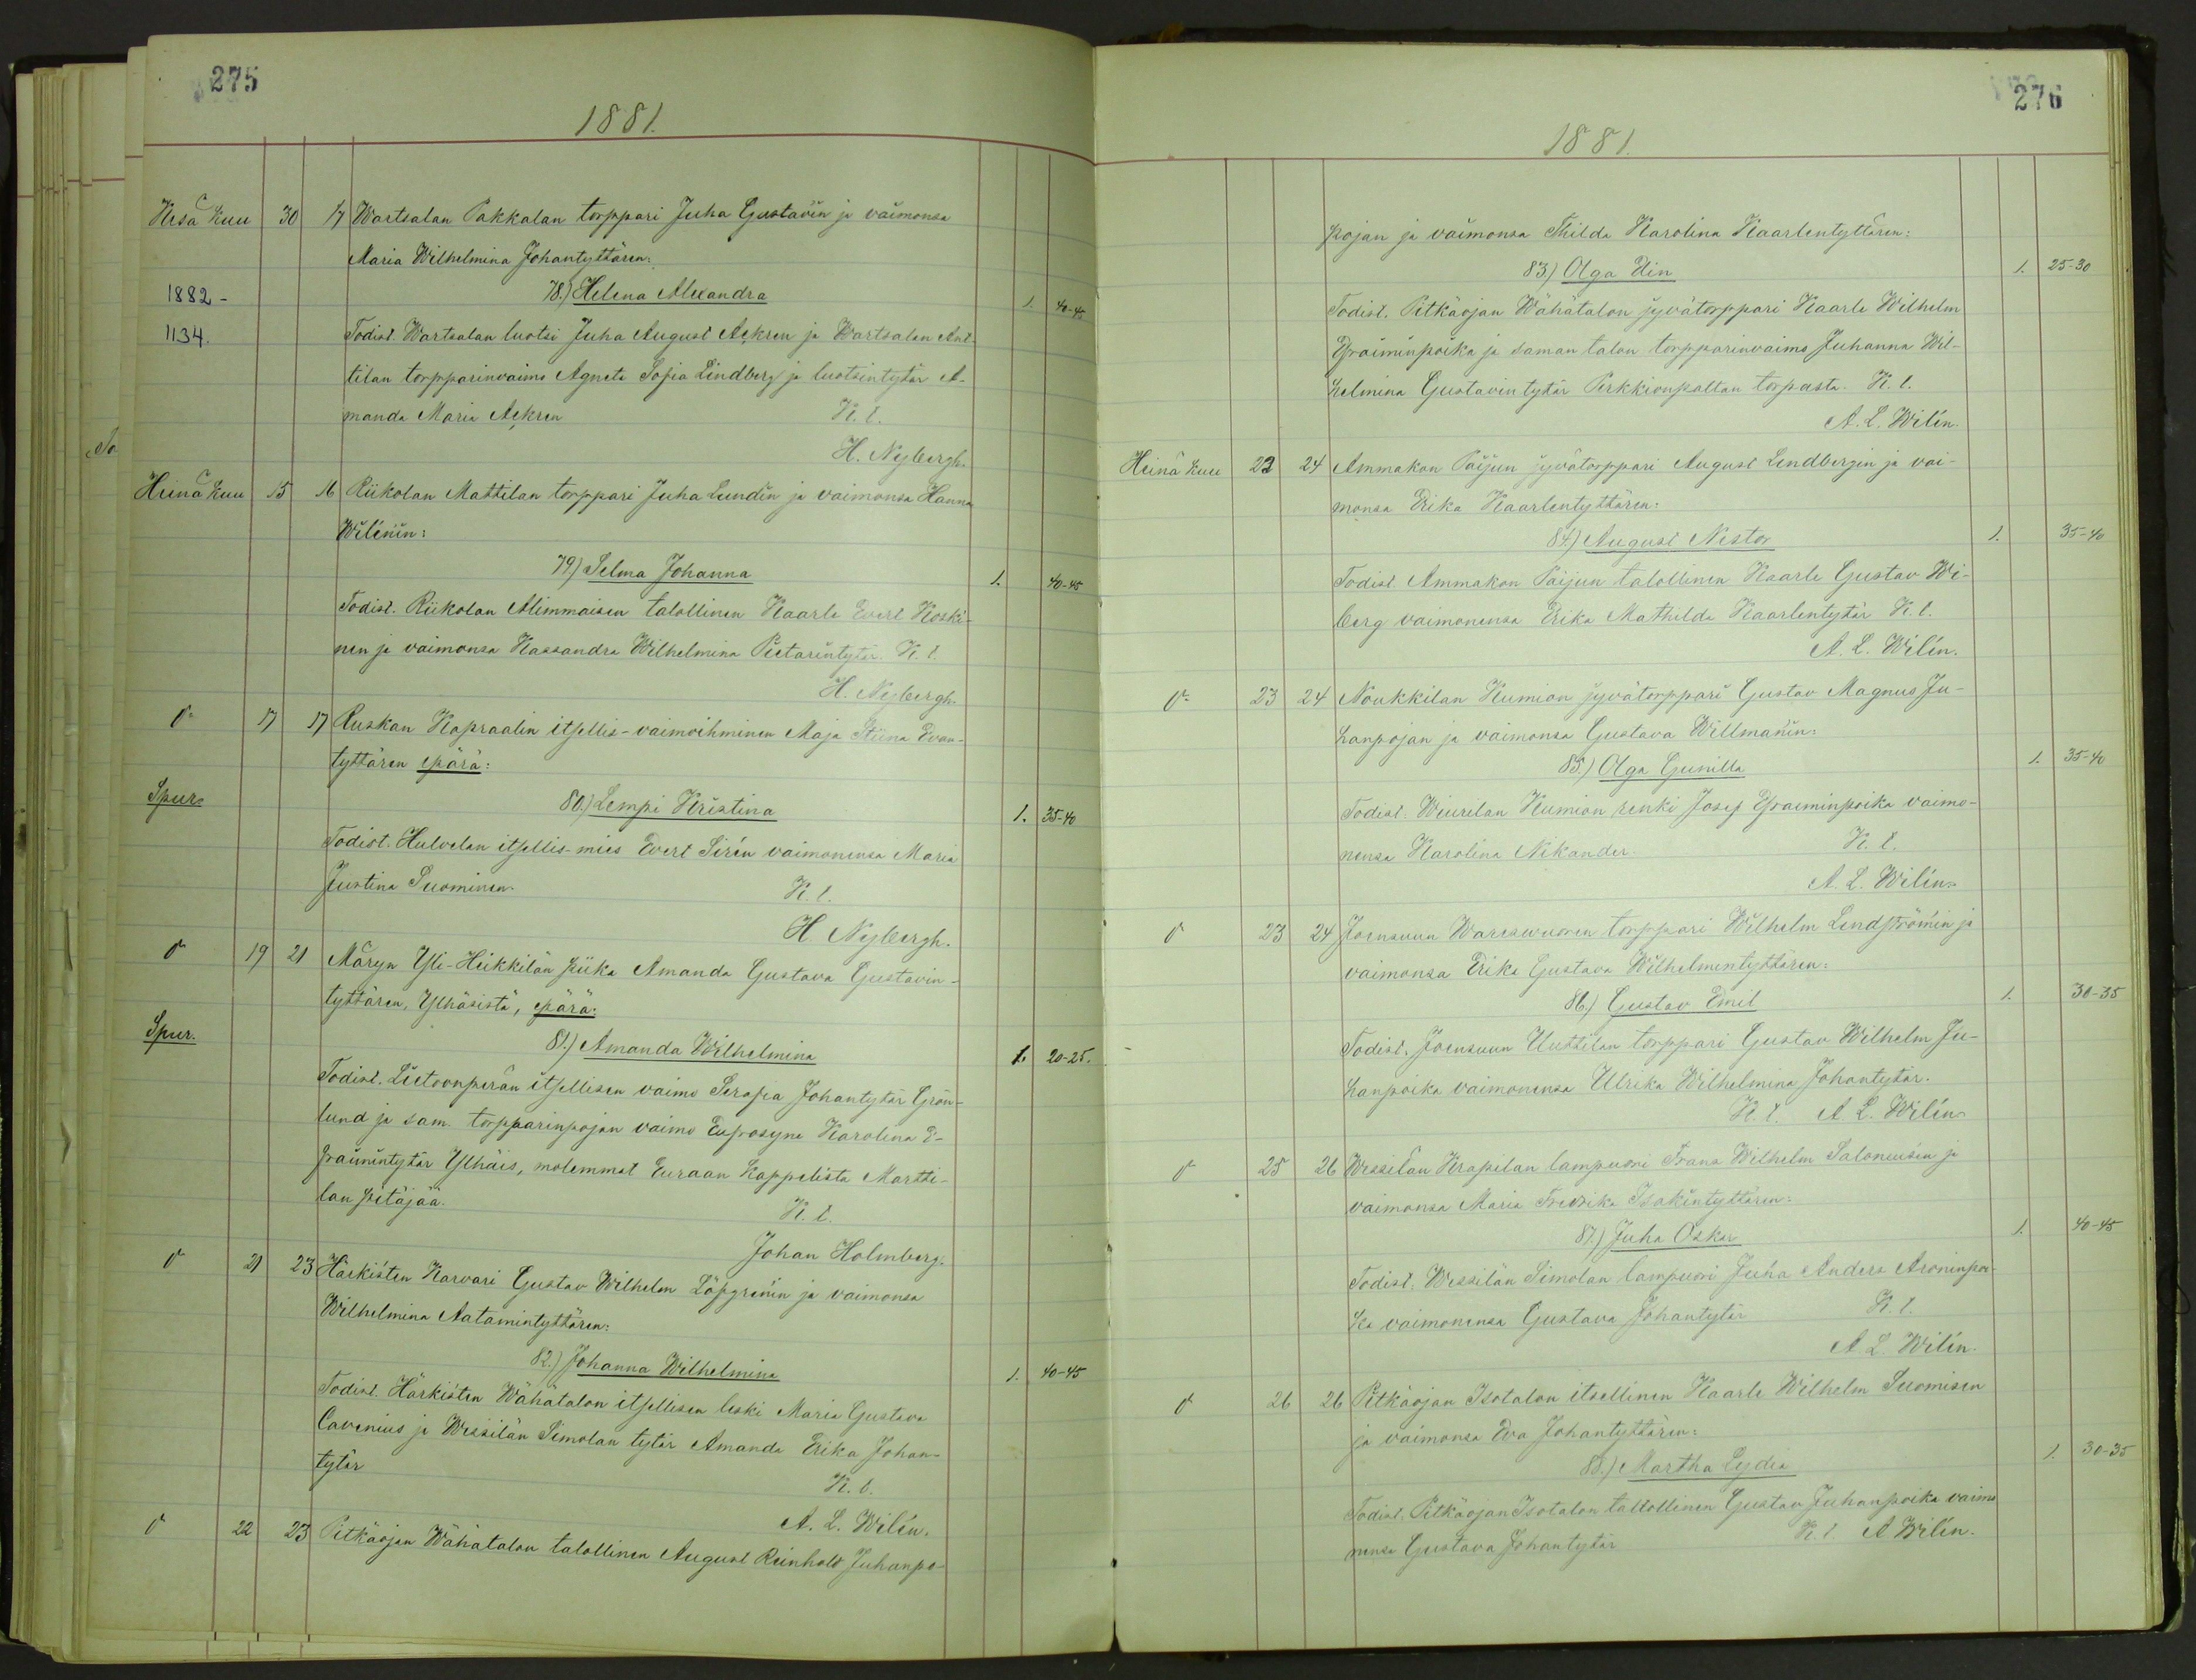 275
1881.
Kesä kuu 30 17 Wartsalan Pakkalan torppari Juha Gustavin ja vaimonsa
Maria Wilhelmina Johantyttären:
1882- 78.) Helena Alexandra 1. 40-45
1134. Todist. Wartsalan luotsi Juha August Ackren ja Wartsalan Ant-
tilan torpparinvaimo Agneta Sofia Lindberg ja luotsintytär A-
manda Maria Ackren K. l.
H. Nybergh.
Heinä kuu 15 16 Riikolan Mattilan torppari Juha Lundin ja vaimonsa Hanna
Wilénin:
79.) Selma Johanna 1. 40-45
Todist. Riikolan Alimmaisen talollinen Kaarle Evert Koski-
nen ja vaimonsa Kassandra Wilhelmina Pietarintytär. K. l.
H. Nybergh.
17 17 Ruskan Kapraalin itsellis-vaimoihminen Maja Stiina Evan-
tyttären epärä:
Spur. 80.) Lempi Kristina 1. 35-40
Todist. Hulvelan itsellis-mies Evert Sirén vaimonensa Maria
Justina Suominen. K. l.
H. Nybergh.
19 21 Märyn Yli-Heikkilän piika Amanda Gustava Gustavin-
tyttären, Ylhäsistä, epärä:
Spur. 81.) Amanda Wilhelmina 1. 20-25.
Todist. Lietoonperän itsellisen vaimo Serafia Johantytär Grön-
lund ja sam. torpparinpojan vaimo Eufrosyne Karolina E-
fraimintytär Ylhäis, molemmat Euraan kappelista Martti-
lan pitäjää. K. l.
Johan Holmberg.
21 23 Härkisten Karvari Gustav Wilhelm Löfgrénin ja vaimonsa
Wilhelmina Aatamintyttären:
82.) Johanna Wilhelmina 1. 40-45
Todist. Härkisten Wähätalon itsellisen leski Maria Gustava
Cavenius ja Wessilän Simolan tytär Amanda Erika Johan-
tytär K. l.
A. L. Wilén.
22 23 Pitkäojan Wähätalon talollinen August Reinhold Juhanpo-
276
1881.
pojan ja vaimonsa Thilda Karolina Kaarlentyttären:
83.) Olga Elin 1. 25-30
Todist. Pitkäojan Wähätalon jyvätorppari Kaarle Wilhelm
Efraiminpoika ja saman talon torpparinvaimo Juhanna Wil-
helmina Gustavintytär Pirkkionpaltan torpasta. K. l.
A. L. Wilén.
Heinä kuu 22 24 Ammakon Päijun jyvätorppari August Lindbergin ja vai-
monsa Erika Kaarlentyttären:
84.) August Nestor 1. 35-40
Todist Ammakon Päijun talollinen Kaarle Gustav Wi-
berg vaimonensa Erika Mathilda Kaarlentytär K. l.
A. L. Wilén.
23 24 Noukkilan Kumion jyvätorppari Gustav Magnus Ju-
hanpojan ja vaimonsa Gustava Willmanin:
85.) Olga Gunilla 1. 35-40
Todist. Wiurilan Kumion renki Josef Efraeminpoika vaimo-
nensa Karolina Nikander. K. l.
A. L. Wilén.
23 24 Joensuun Wareswuoren torppari Wilhelm Lindströmin ja
vaimonsa Erika Gustava Wilhelmintyttären:
86.) Gustav Emil 1. 30-35
Todist. Joensuun Uustilan torppari Gustav Wilhelm Ju-
hanpoika vaimonensa Ulrika Wilhelmina Johantytär.
K. l. A L. Wilén.
25 26 Wessilän Krapilan lampuori Frans Wilhelm Saloneusin ja
vaimonsa Maria Fredrika Isakintyttären:
87.) Juha Oskar 1. 40-45
Todist. Wessilän Simolan lampuori Juha Anders Aroninpoi-
ka vaimonensa Gustava Johantytär K. l.
A L. Wilén.
26 26 Pitkäojan Isotalon itsellinen Kaarle Wilhelm Suomisen
ja vaimonsa Eva Johantyttären:
88.) Martha Lydia 1. 30-35
Todist. Pitkäojan Isotalon talollinen Gustav Juhanpoika vaimo
nensa Gustava Johantytär K. l. A Wilén.